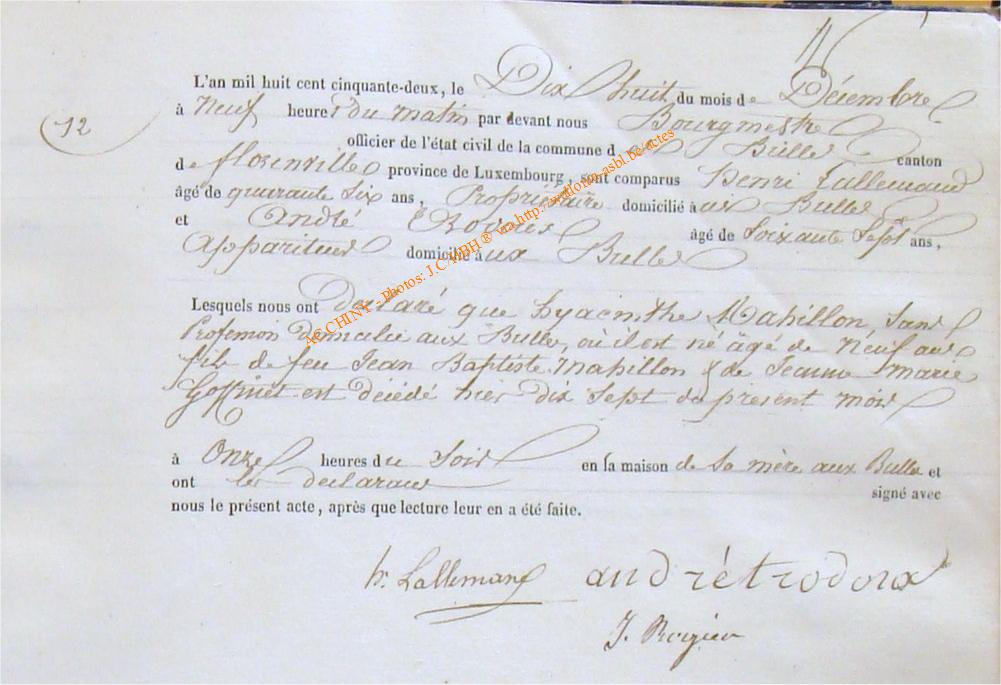 12
L'an mil huit cent cinquante-deux, le Dix huit du mois de Décembre
à Neuf heures du matin par devant nous Bourgmestre
officier de l'état civil de la commune des Bulles canton
de florenville province de Luxembourg, sont comparus Henri Lallemand
âgé de quarante Six ans, Propriétaire domicilié à ux Bulles
et André âgé de Soixante Sept ans,
Appariteur domicilié à ux Bulles
Lesquels nous ont Declaré que hyacinthe Mahillon, Sans
Profession domicilié aux Bulles, où il est né âgé de Neuf ans
fils de feu Jean Baptiste Mahillon & de Jeanne marie
Goffinet est décédé hier dix Sept du présent mois
à Onze heures du Soir en la maison de Sa mère aux Bulles et
ont les declarans signé avec
nous le présent acte, après que lecture leur en a été faite.
h. Lallemand andrétrodoux
J. Rogier
AC CHINY - Photos: J.C. HBH ® via http://wallonia.asbl.be-actes